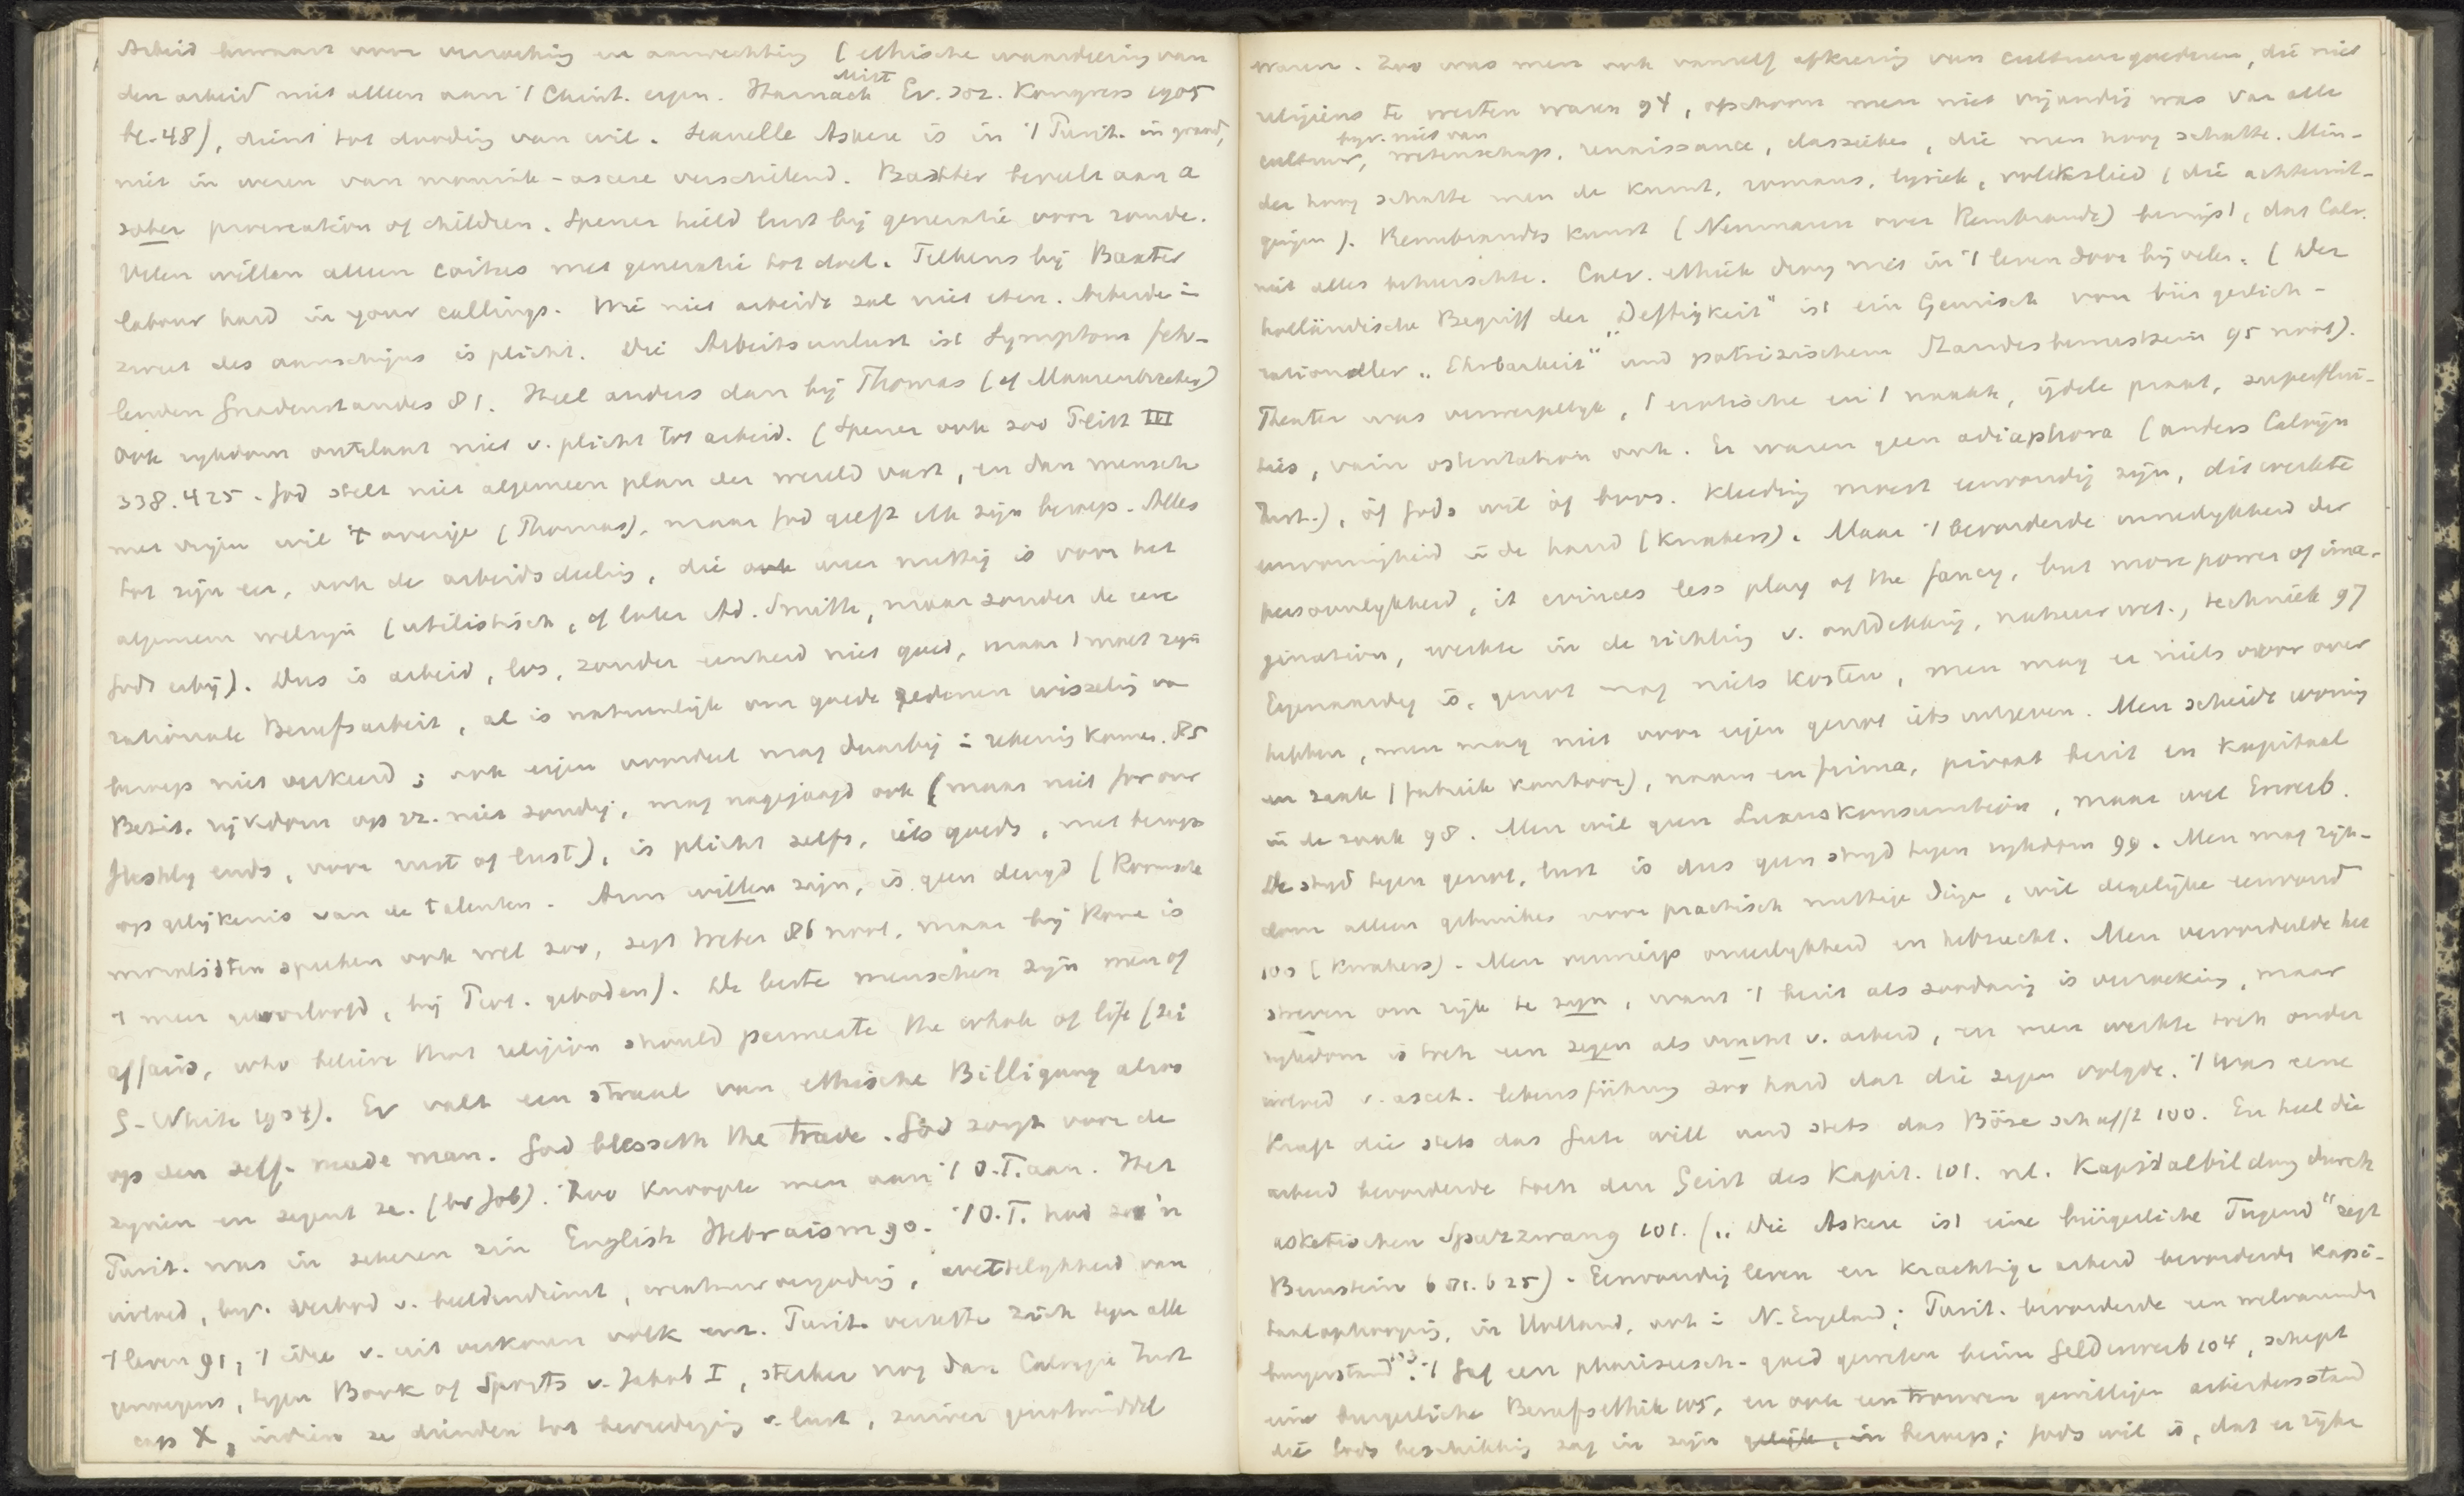 Arbeid bewaart voor verzoeking en aanvechting (ethische waardeering van
den arbeid niet alleen aan 't Christ. eigen. Harnack Mitt Ev. soz. Kongress 1905
bl. 48), dient tot dooding van wil. Sexuelle Askese is in 't Purit. in graad,
niet in wezen van monnik-ascese verschillend. Baxter beveelt aan a
sober procreation of children. Spener hield lust bij generatie voor zonde.
Velen willen alleen coitus met generatie tot doel. Telkens bij Baxter
labour hard in your callings. Wie niet arbeidt zal niet eten. Arbeid in
zweet des aanschijns is plicht. Die Arbeitsunlust ist Symptom feh-
lenden Gnadenstandes 81. Heel anders dan bij Thomas (cf Maurenbrecher)
Ook rijkdom ontslaat niet v. plicht tot arbeid. (Spener ook zoo Ritschl III
338. 425. God stelt niet algemeen plan der wereld vast, en dan mensch
met vrijen wil 't overige (Thomas), maar God geeft elk zijn beroep. Alles
tot zijn eer, ook de arbeidsdeeling, die ook weer nuttig is voor het
algemeen welzijn (utilistisch, cf later Ad. Smith, maar zonder de eere
Gods erbij). Dus is arbeid, los, zonder eenheid niet goed, maar 't moet zijn
rationale Berufsarbeit, al is natuurlijk om goede redenen wisseling van
beroep niet verkeerd; ook eigen voordeel mag daarbij in rekening komen. 85
Bezit, rijkdom op zz. niet zondig, mag nagejaagd ook (maar niet for our
fleshly ends, voor rust of lust), is plicht zelfs, iets goeds, met beroep
op gelijkenis van de talenten. Arm willen zijn, is geen deugd (Roomsche
moralisten spreken ook wel zoo, zegt Weber 86 noot, maar bij Rome is
't meer geoorloofd, bij Prot. geboden). De beste menschen zijn men of
affairs, who believe that religion should permeate the whole of life (zei
G. White 1904). Er valt een straal van ethische Billigung alzoo
op den self-made man. God blesseth the trade. God zorgt voor de
zijnen en zegent ze. (bv Job). Zoo knoopte men aan 't O.T. aan. Het
Purit. was in zekeren zin English Hebraism 90. 't O.T. had zoo'n
invloed, bijv. verbod v. beeldendienst, creatuurvergoding, wettelijkheid van
't leven 91, 't idee v. uit verkoren volk enz. Purit. verzette zich tegen alle
genoegens, tegen Book of Sports v. Jakob I, sterker nog dan Calvijn Inst
cap X, indien ze dienden tot bevrediging v. lust, zuiver genotmiddel
waren. Zoo was men ook vanzelf afkeerig van cultuurgoederen, die niet
religieus te werten waren 94, ofschoon men niet vijandig was van alle
cultuur, bijv. niet van wetenschap, renaissance, classieke, die men hoog schatte. Min-
der hoog schatte men de kunst, romans, lyriek, volkslied (die achteruit-
gingen). Rembrandts kunst (Neumann over Rembrandt) bewijst, dat Calv.
niet alles beheerschte. Calv. ethiek drong niet in 't leven door bij velen. (Der
holländische Begriff der "Deftigkeit" ist ein Gemisch von bürgerlich-
rationaller "Ehrbarkeit" und patrizischem Standesbewustzein 95 noot).
Theater was verwerpelijk, 't erotische en 't naakt, ijdele praat, superflui-
ties, vain ostentation ook. Er waren geen adiaphora (anders Calvijn
Inst.), óf Gods wil óf boos. Kleeding moest eenvoudig zijn, dit werkte
eenvormigheid in de hand (Kwakers). Maar 't bevorderde innerlijkheid der
persoonlijkheid, it evinces less play of the fancy, but more power of ima-
gination, werkte in de richting v. ontdekking, natuurwet., techniek 97
Eigenaardig is, genot mag niets kosten, men mag er niets voor over
hebben, men mag niet voor eigen genot iets uitgeven. Men scheidt woning
en zaak (fabriek kantoor), naam en firma, privaat bezit en kapitaal
in de zaak 98. Men wil geen Luxuskonsumtion, maar wel Erwerb.
De strijd tegen genot, lust is dus geen strijd tegen rijkdom 99. Men mag rijk-
dom alleen gebruiken voor practisch nuttige dinge, wil degelijke eenvoud
100 (Kwakers). Men verwierp oneerlijkheid en hebzucht. Men veroordeelde het
streven om rijk te zijn, want 't bezit als zoodanig is verzoeking, maar
rijkdom is toch een zegen als vrucht v. arbeid, en men werkte toch onder
invloed v. ascet. lebensführung zoo hard dat die zegen volgde. 't Was eene
Kraft die stets das Gute will und stets das Böse schafft 100. En heel die
arbeid bevorderde toch den Geist des Kapit. 101. nl. Kapitalbildung durch
asketischen Sparzwang 101. („Die Askese ist eine bürgerliche Tugend" zegt
Bernstein 681. 625). Eenvoudig leven en krachtige arbeid bevorderde kapi-
taalophooping, in Holland, ook in N. Engeland; Purit. bevorderde een welvarende
burgerstand 103. 't Gaf een pharizeesch-goed geweten beim Gelderwerb 104, schept
eine burgerliche Berufsethik 105, en ook een trouwen gewilligen arbeidersstand
die Gods beschikking zag in zijn beroep; Gods wil is, dat er rijke